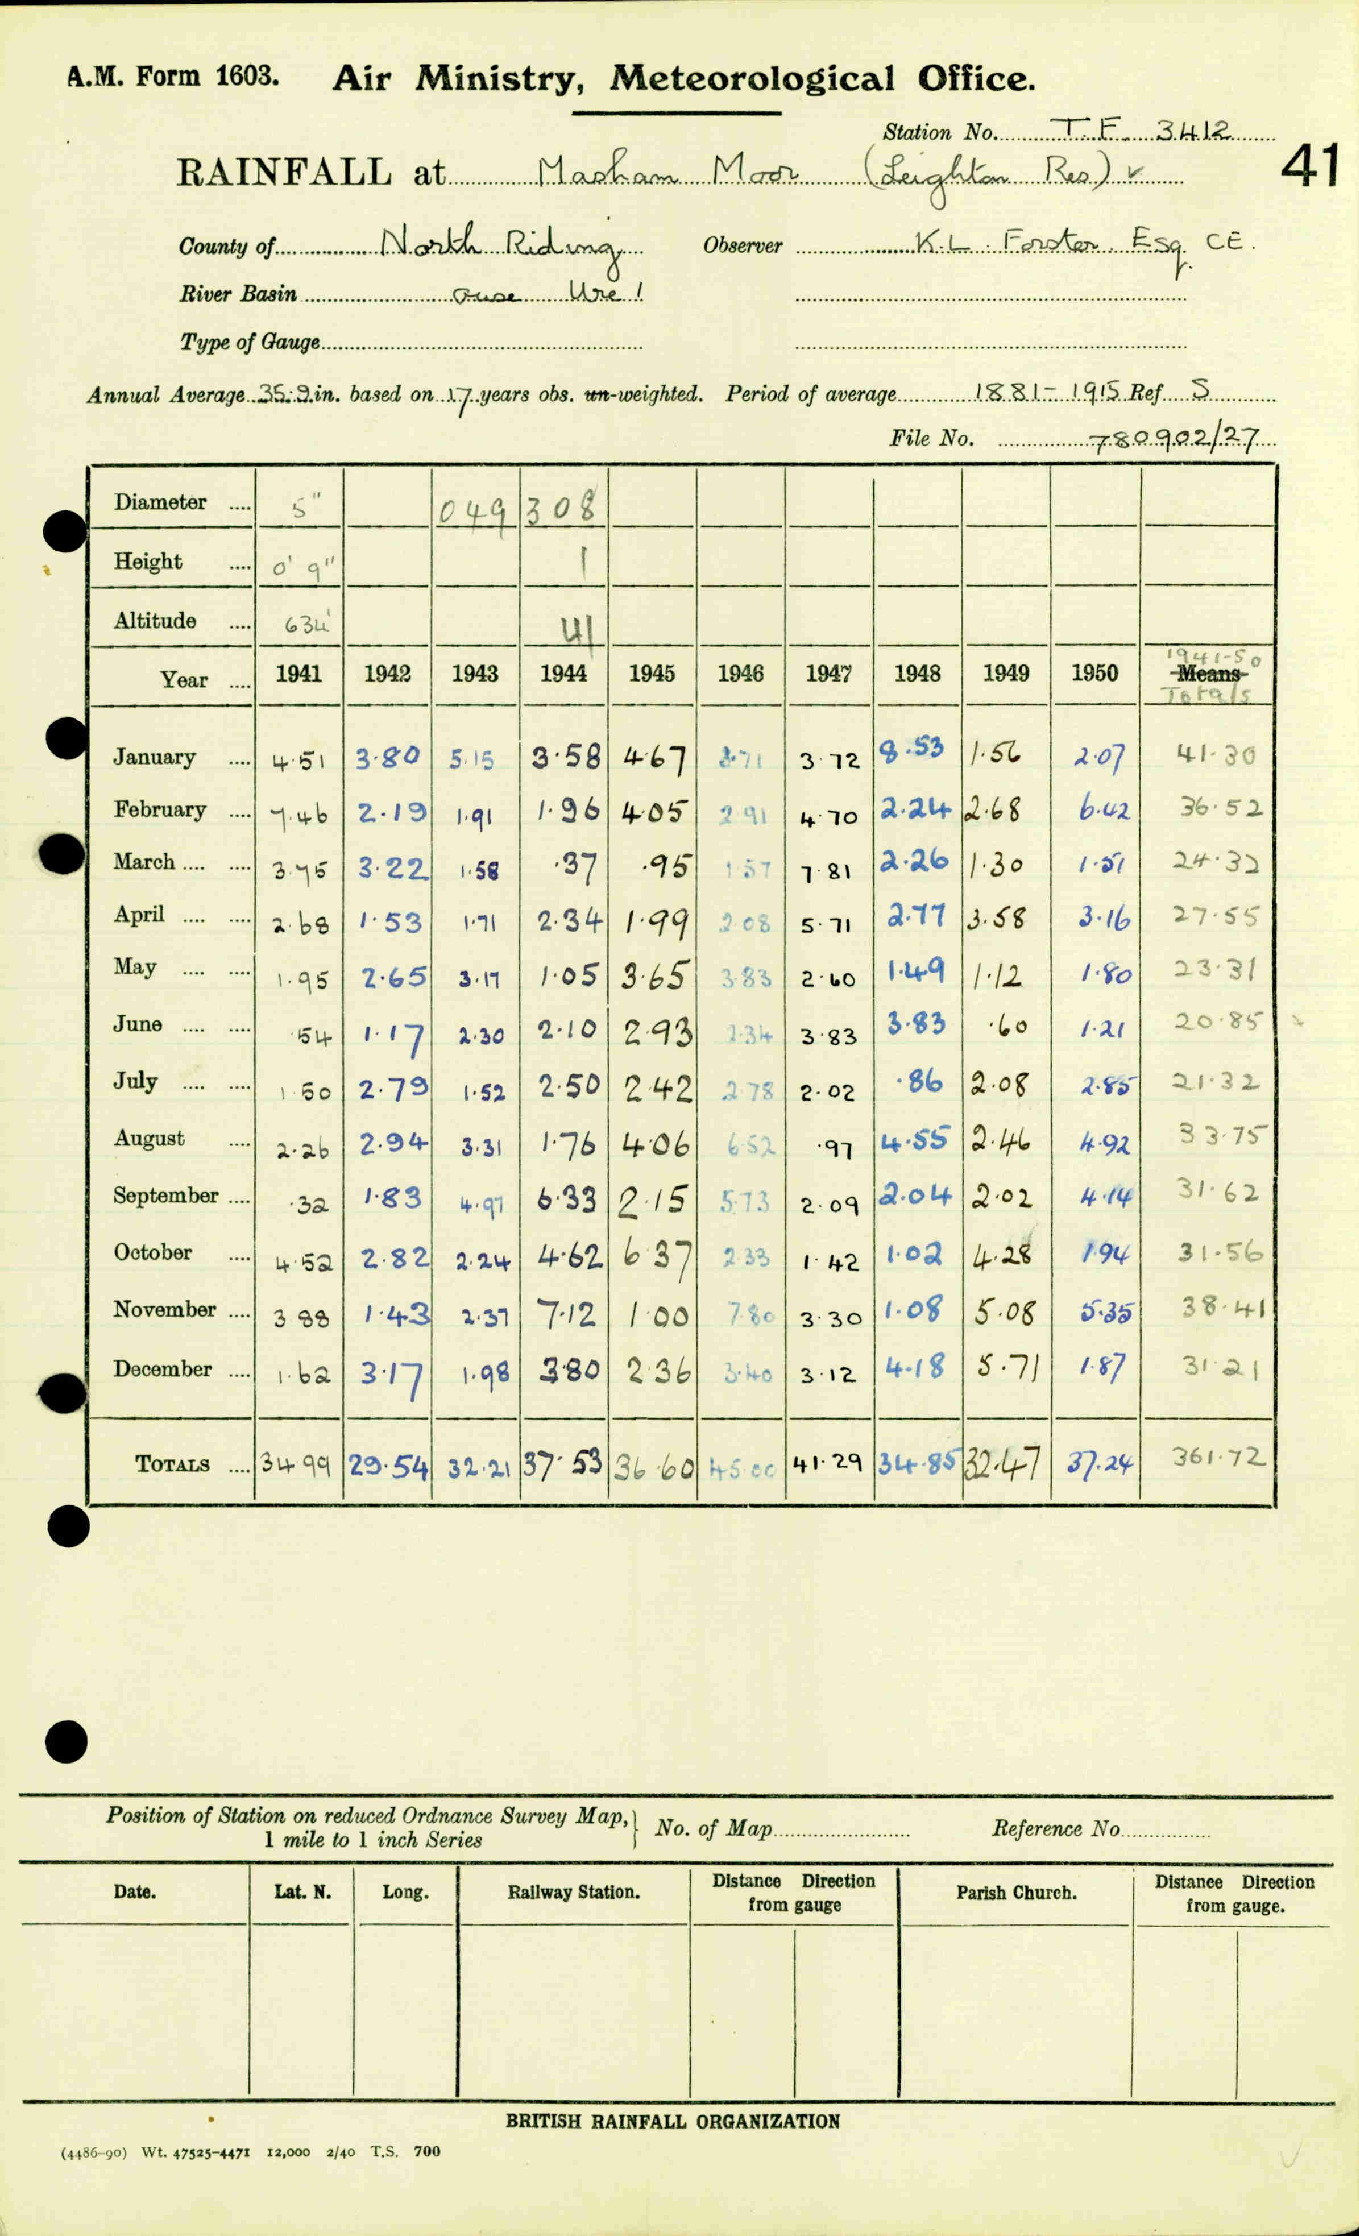 A.M. Form 1603. Air Ministry, Meteorological Office.
Station No. T.F. 3412
RAINFALL at Masham Moor (Leighton Res) ✓ 41
County of North Riding Observer K.L. Forster Esq. CE.
River Basin Ouse Ure 1
Type of Gauge
Annual Average 35.9 in. based on 17 years obs. un-weighted. Period of average 1881-1915 Ref. S
File No. 780902/27
Diameter .... 5" 049 308
Height .... 0' 9" 1
Altitude .... 634' 41
Year .... 1941 1942 1943 1944 1945 1946 1947 1948 1949 1950 1941-50 Means Totals
January .... 4.51 3.80 5.15 3.58 4.67 3.71 3.72 8.53 1.56 2.07 41.30
February .... 7.46 2.19 1.91 1.96 4.05 2.91 4.70 2.24 2.68 6.42 36.52
March .... .... 3.75 3.22 1.58 .37 .95 1.57 7.81 2.26 1.30 1.51 24.32
April .... .... 2.68 1.53 1.71 2.34 1.99 2.08 5.71 2.77 3.58 3.16 27.55
May .... .... 1.95 2.65 3.17 1.05 3.65 3.83 2.60 1.49 1.12 1.80 23.31
June .... .... .54 1.17 2.30 2.10 2.93 2.34 3.83 3.83 .60 1.21 20.85
July .... .... 1.50 2.79 1.52 2.50 2.42 2.78 2.02 .86 2.08 2.85 21.32
August .... 2.26 2.94 3.31 1.76 4.06 6.52 .97 4.55 2.46 4.92 33.75
September .... .32 1.83 4.97 6.33 2.15 5.73 2.09 2.04 2.02 4.14 31.62
October .... 4.52 2.82 2.24 4.62 6.37 2.33 1.42 1.02 4.28 1.94 31.56
November .... 3.88 1.43 2.37 7.12 1.00 7.80 3.30 1.08 5.08 5.35 38.41
December .... 1.62 3.17 1.98 3.80 2.36 3.40 3.12 4.18 5.71 1.87 31.21
TOTALS .... 34.99 29.54 32.21 37.53 36.60 45.00 41.29 34.85 32.47 37.24 361.72
Position of Station on reduced Ordnance Survey Map, } No. of Map Reference No.
1 mile to 1 inch Series
Date. Lat. N. Long. Railway Station. Distance Direction from gauge Parish Church. Distance Direction from gauge.
BRITISH RAINFALL ORGANIZATION
(4486-90) Wt. 47525-4471 12,000 2/40 T.S. 700